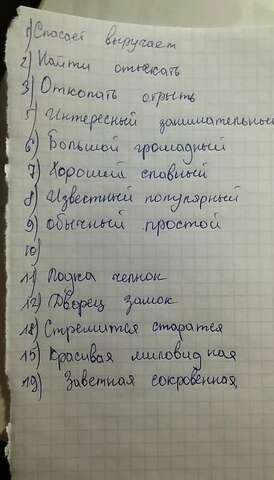 1) Спасает выручает
2) Найти отыскать
3) Откопать отрыть
5) Интересный занимательный
6) Большой громадный
7) Хороший славный
8) Известный популярный
9) обычный простой
10)
11) Лодка челнок
12) Дворец замок
18) Стремится старатся
15) Красивая миловидная
19) Заветная сокровенная